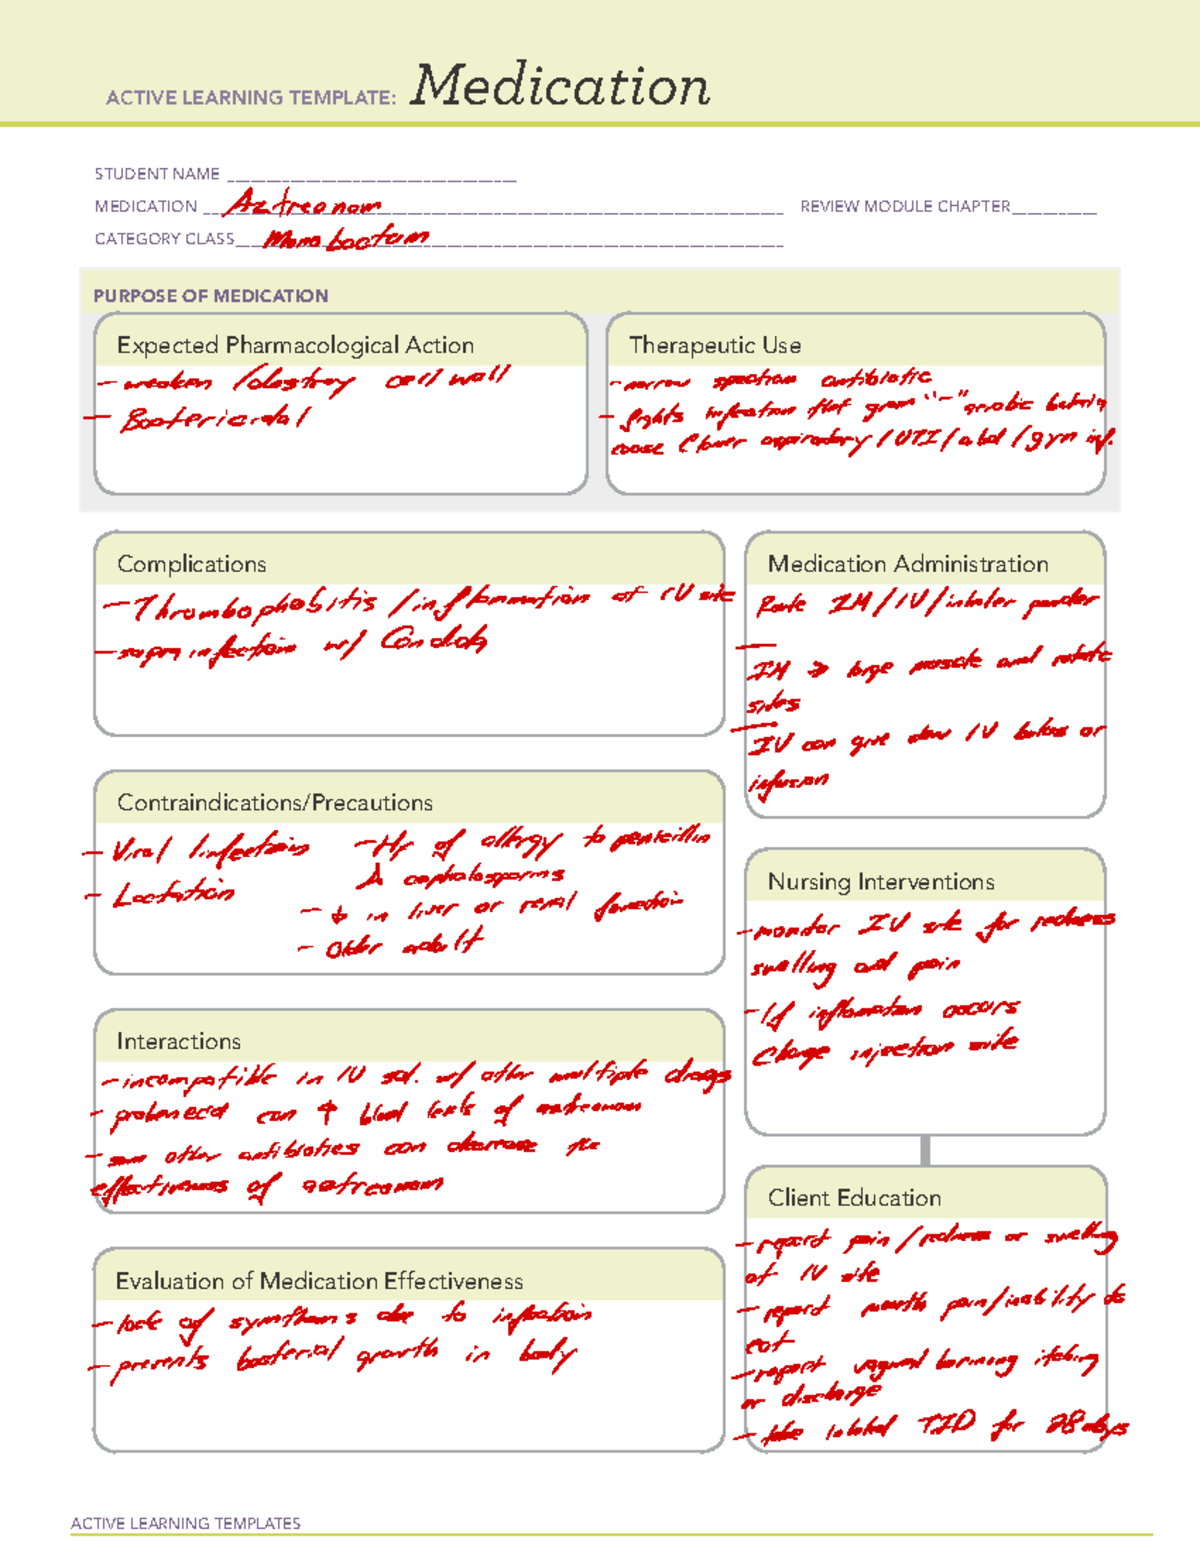 ACTIVE LEARNING TEMPLATE: Medication
STUDENT NAME
MEDICATION Aztreonam REVIEW MODULE CHAPTER
CATEGORY CLASS Monobactam
PURPOSE OF MEDICATION
Expected Pharmacological Action
- weaken / destroy cell wall
- Bactericidal
Therapeutic Use
- narrow spectrum antibiotic
- fights infection that gram "-" aerobic bacteria
cause (lower respiratory / UTI / abd / gyn inf.
Complications
- Thrombophebitis / inflammation at IV site
- suprainfection w/ Candida
Medication Administration
Route IM / IV / inhaler powder
IM → large muscle and rotate
sites
IV can give slow IV bolus or
infusion
Contraindications/Precautions
- Viral Infections
- Lactation
- Hx of allergy to penicillin
cephalosporins
- ↓ in liver or renal function
- Older adult
Nursing Interventions
- monitor IV site for redness
swelling and pain
- If inflamation occurs
Change injection site
Interactions
- incompatible in IV sol. w/ other multiple drugs
- probenecid can ↑ blood levels of aztreonam
- some other antibiotics can decrease the
effectiveness of aztreonam
Client Education
- report pain / redness or swelling
at IV site
- report mouth pain / inability to
eat
- report vaginal burning itching
or discharge
- inhaled TID for 28 days
Evaluation of Medication Effectiveness
- lack of symthoms due to infection
- prevents bacterial growth in body
ACTIVE LEARNING TEMPLATES